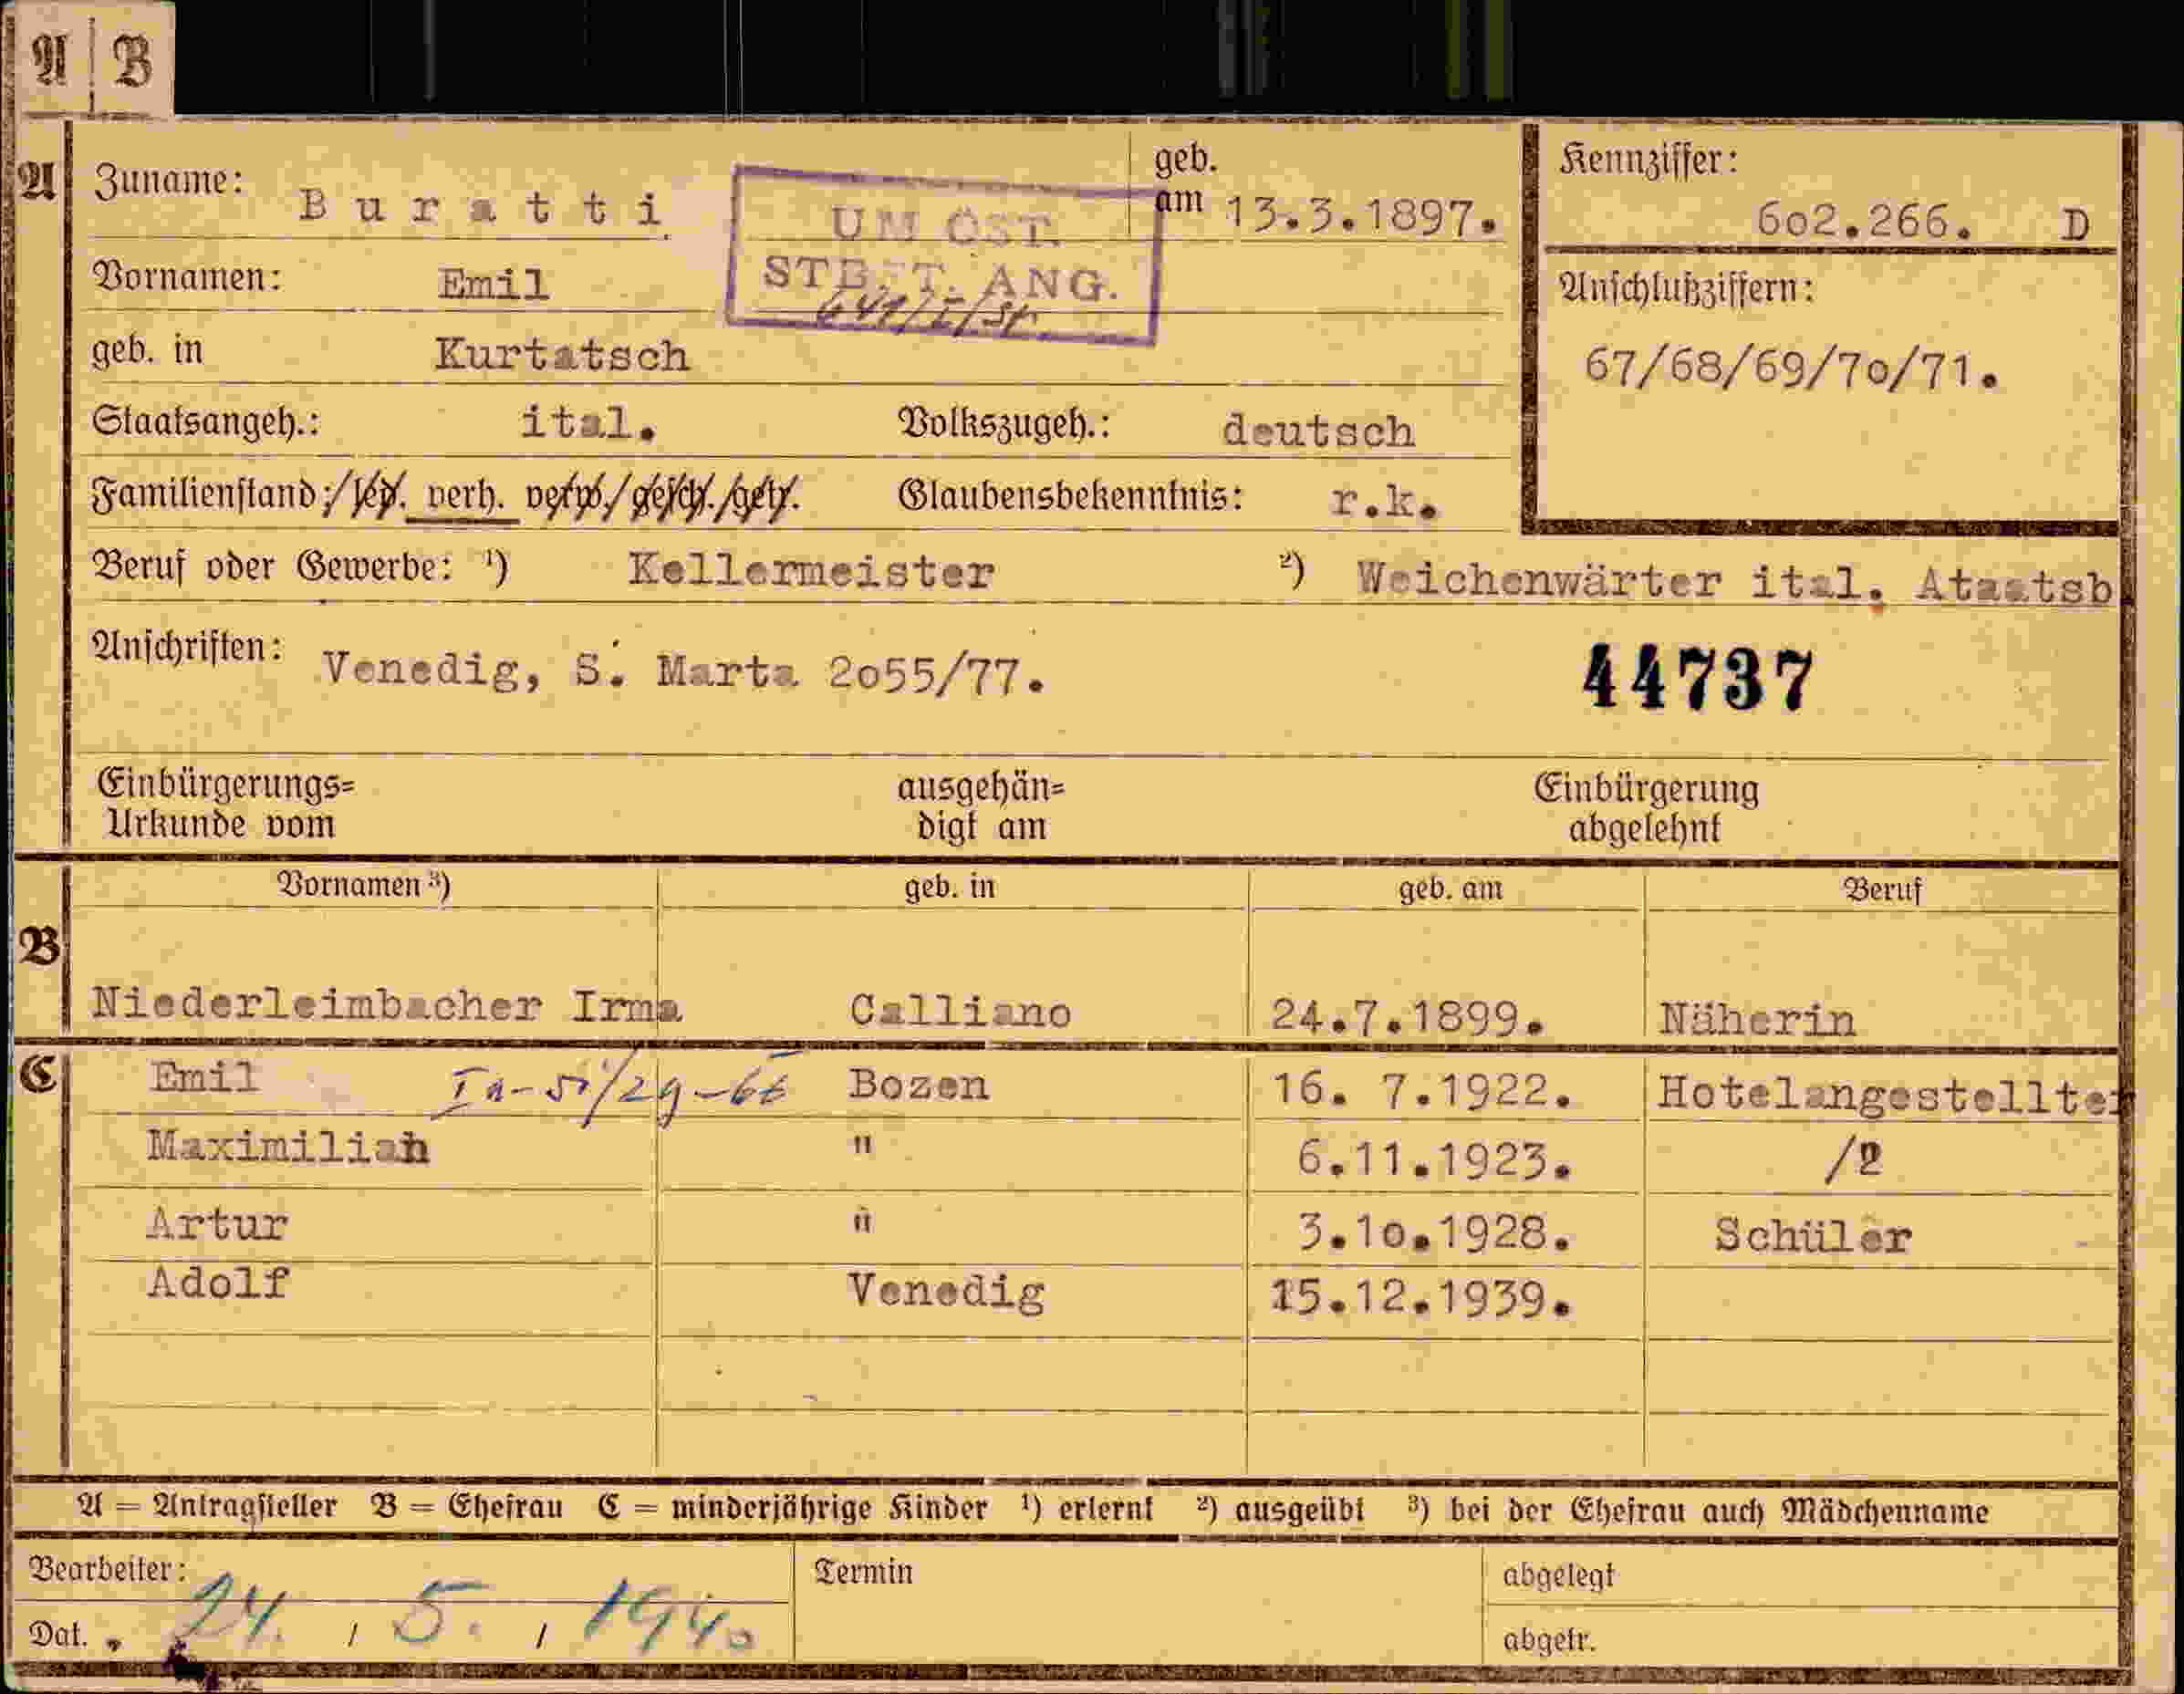 A B
A Zuname: Buratti geb. am 13.3.1897. Kennziffer: 602.266. D
UM ÖST.
STB.T. ANG.
Vornamen: Emil Anschlußziffern:
geb. in Kurtatsch 67/68/69/70/71.
Staatsangeh.: ital. Volkszugeh.: deutsch
Familienstand: led. verh. verw. gesch. getr. Glaubensbekenntnis: r.k.
Beruf oder Gewerbe: 1) Kellermeister 2) Weichenwärter ital. Ataatsb
Anschriften: Venedig, S. Marta 2055/77. 44737
Einbürgerungs= ausgehän= Einbürgerung
Urkunde vom digt am abgelehnt
Vornamen 3) geb. in geb. am Beruf
B
Niederleimbacher Irma Calliano 24.7.1899. Näherin
C Emil Bozen 16. 7.1922. Hotelangestellter
Maximilian " 6.11.1923. /2
Artur " 3.10.1928. Schüler
Adolf Venedig 15.12.1939.
A = Antragsteller B = Ehefrau C = minderjährige Kinder 1) erlernt 2) ausgeübt 3) bei der Ehefrau auch Mädchenname
Bearbeiter: Termin abgelegt
Dat. 24. / 5. / 1940 abgetr.